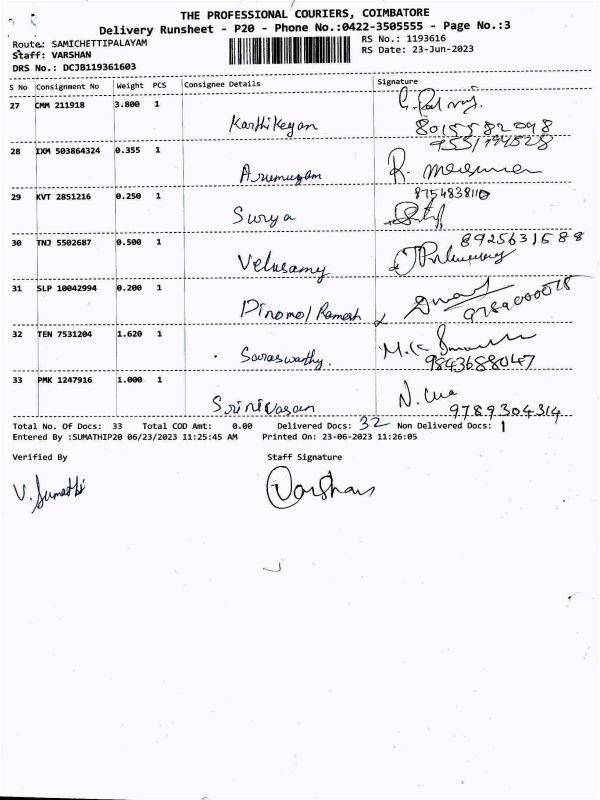 THE PROFESSIONAL COURIERS, COIMBATORE
Delivery Runsheet - P20 - Phone No.:0422-3505555 - Page No.:3
Route: SAMICHETTIPALAYAM RS No.: 1193616
Staff: VARSHAN RS Date: 23-Jun-2023
DRS No.: DCJB119361603
S No Consignment No Weight PCS Consignee Details Signature
27 CMM 211918 3.800 1
Karthikeyan 8015582098
28 IXM 503864324 0.355 1
Arumugam R.
29 KVT 2851216 0.250 1 8754838110
Surya
30 TNJ 5502687 0.500 1 8925631588
Velusamy
31 SLP 10042994 0.200 1
Dinomol Ramesh 9789000078
32 TEN 7531204 1.620 1 M.K
Saraswathy. 9843688047
33 PMK 1247916 1.000 1 N.
Srinivasan 9789304314
Total No. Of Docs: 33 Total COD Amt: 0.00 Delivered Docs: 32 Non Delivered Docs: 1
Entered By :SUMATHIP20 06/23/2023 11:25:45 AM Printed On: 23-06-2023 11:26:05
Verified By Staff Signature
V. Sumathi Varshan